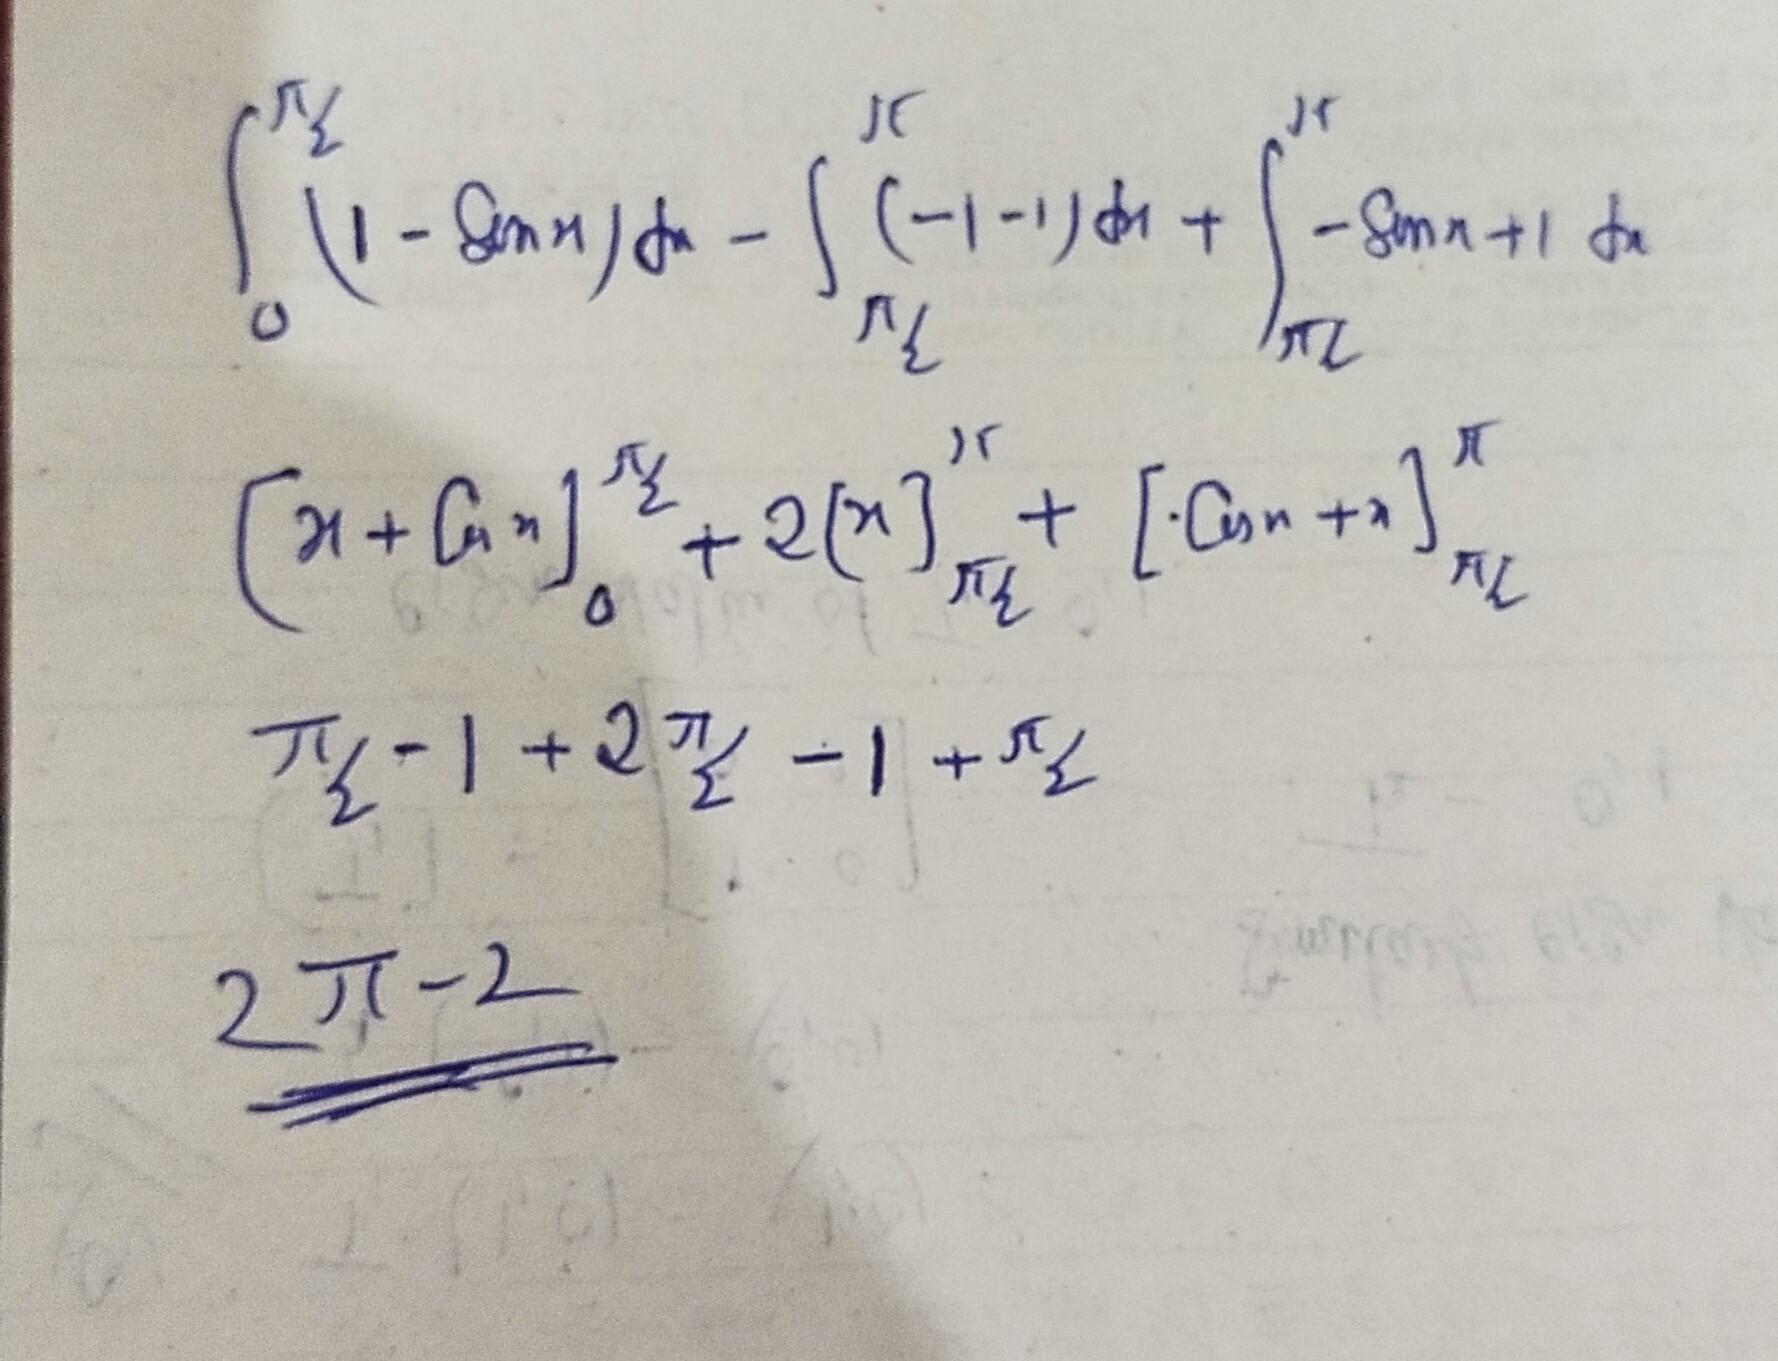 ∫₀^{π/2} (1 - Sin x) dx - ∫_{π/2}^{π} (-1-1) dx + ∫_{π/2}^{π} -Sin x + 1 dx
[x + Cos x]₀^{π/2} + 2[x]_{π/2}^{π} + [Cos x + x]_{π/2}^{π}
π/2 - 1 + 2 π/2 - 1 + π/2
2π - 2